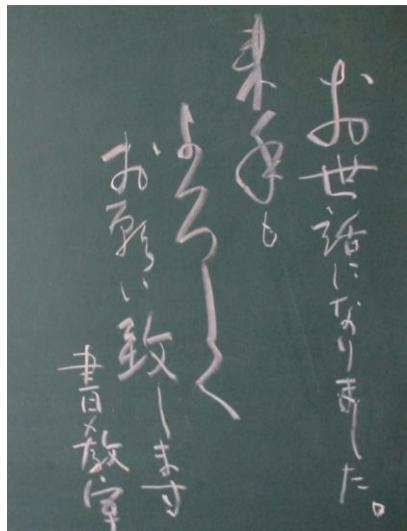 お世話になりました。
来年も
よろしく
お願い致します
書の教室